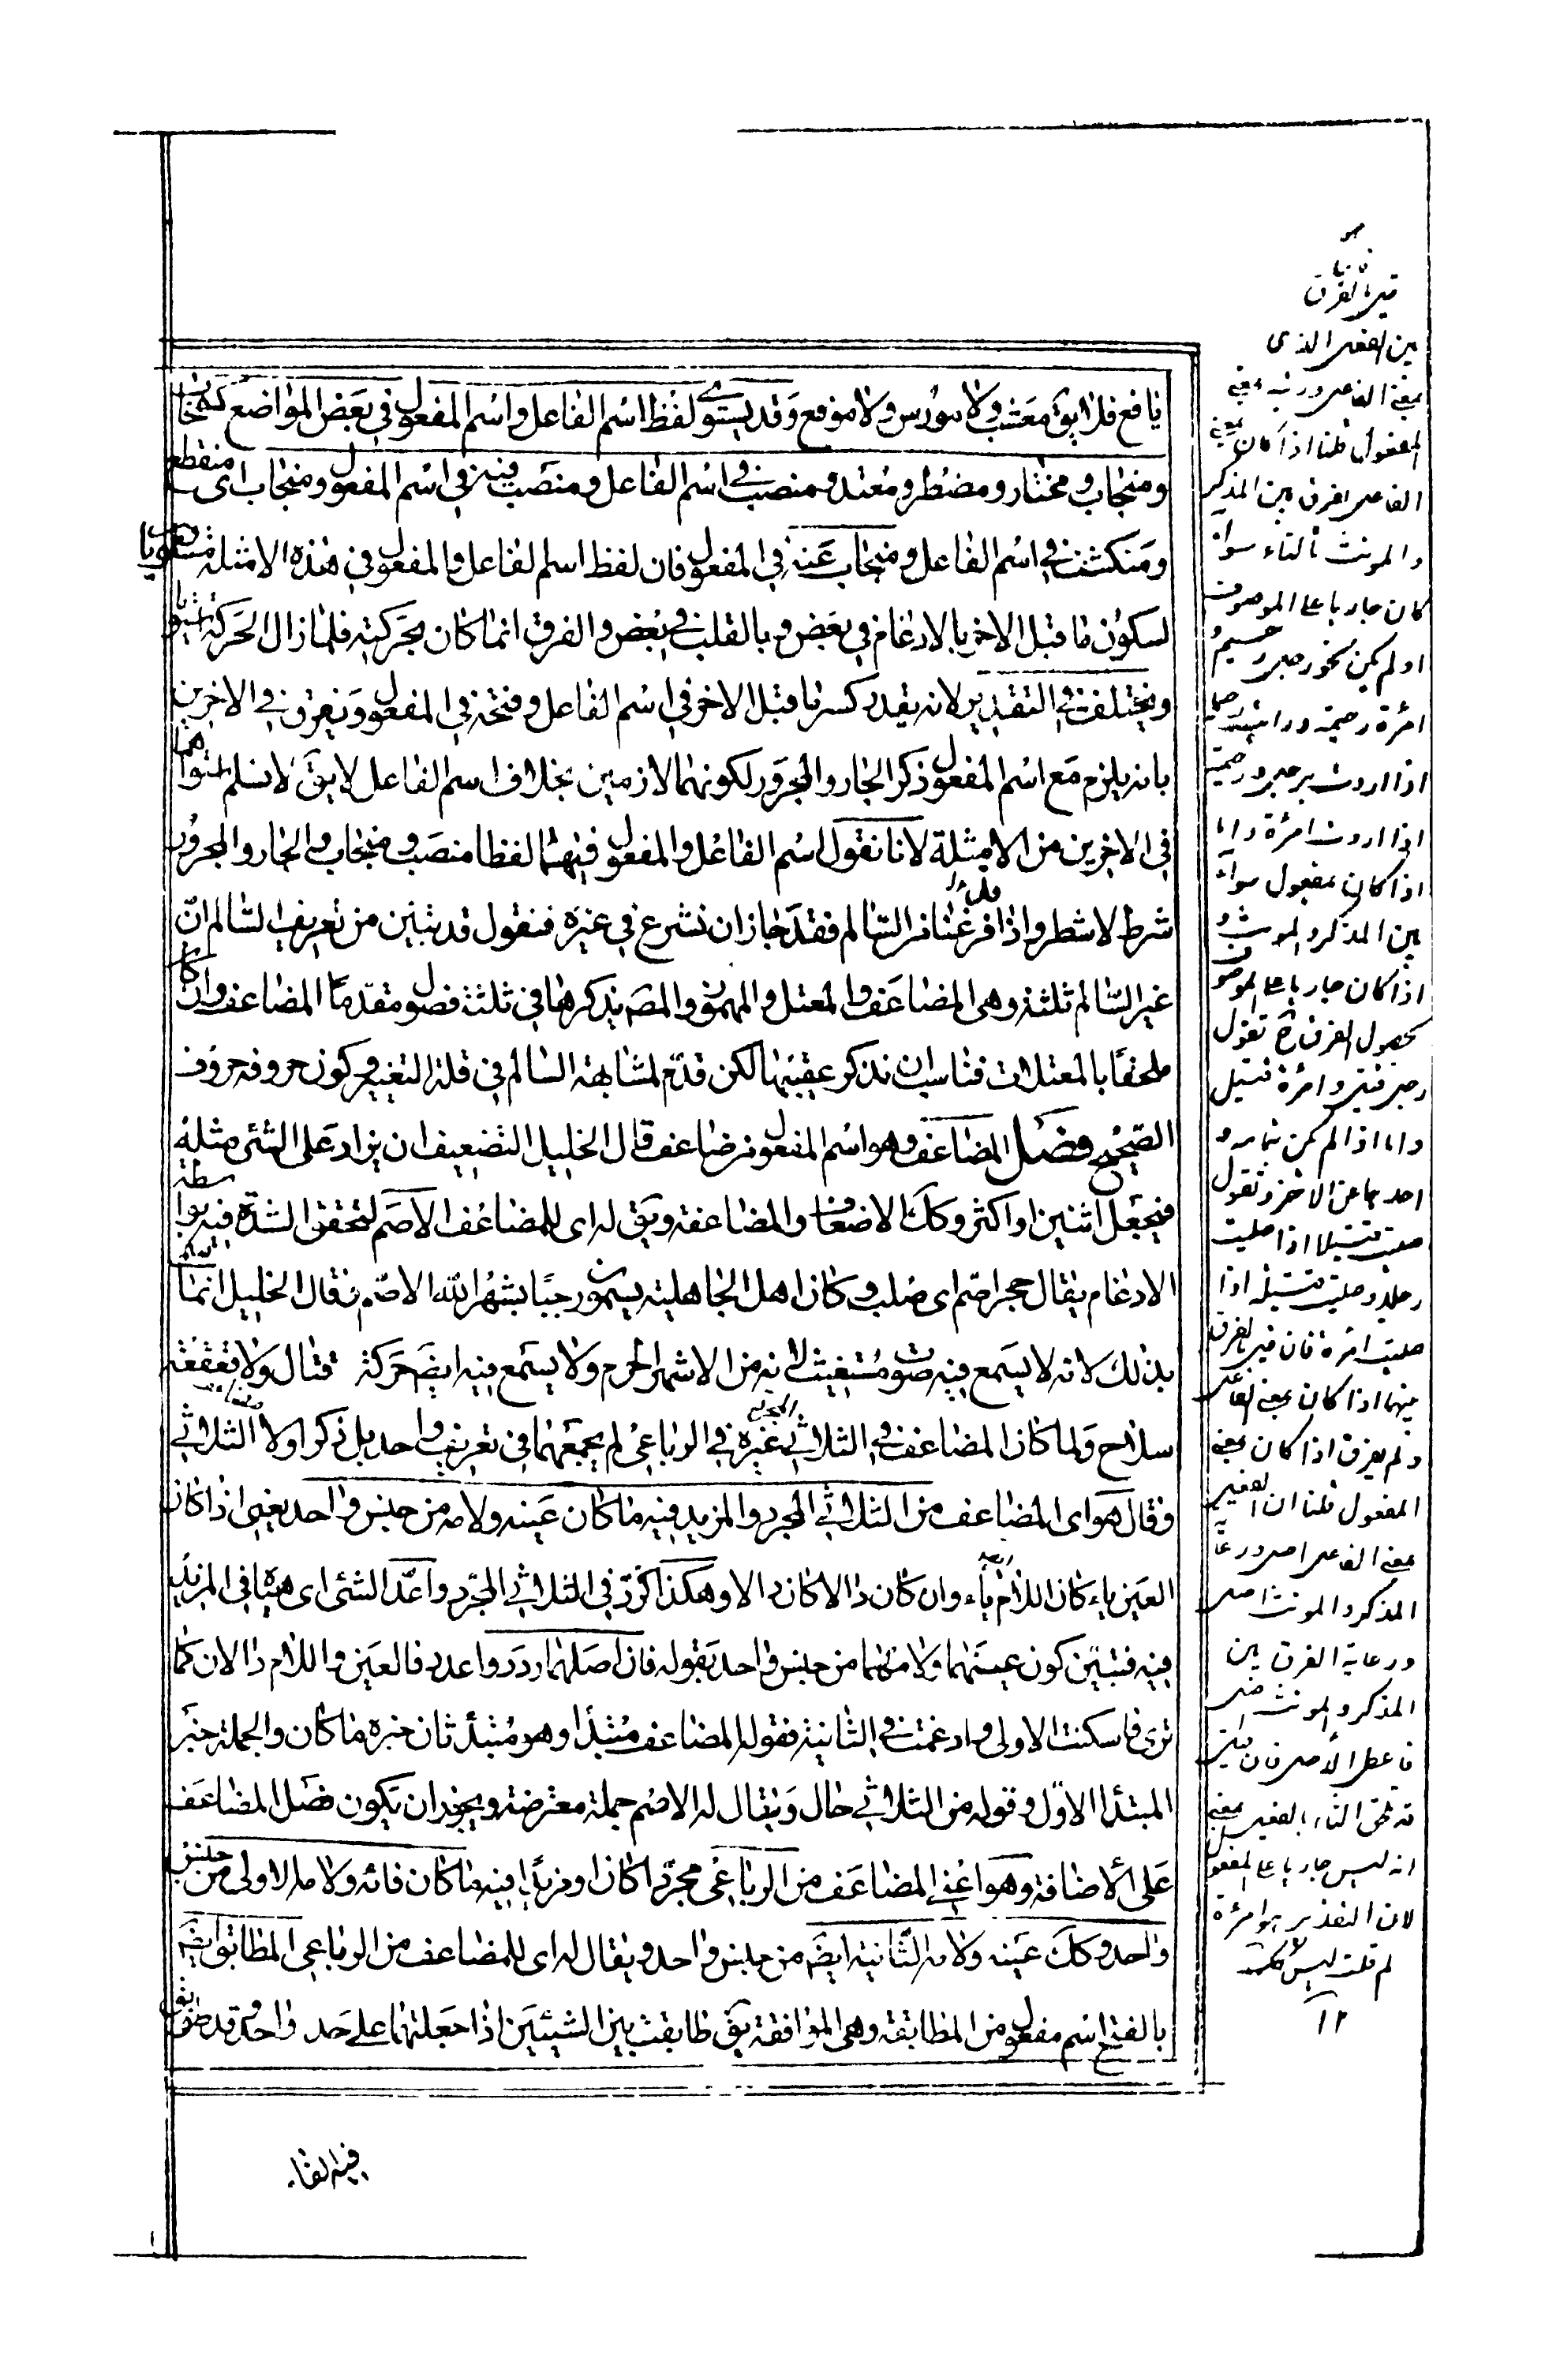 يافع فلا يق معشب ولا مورس ولا موفع وقد يستوى لفظ اسم الفاعل واسم المفعول في بعض المواضع كمحاب
ومنجاب ومختار ومضطر ومعتد ومنصب في اسم الفاعل ومنصب فيه في اسم المفعول ومنجاب اى منقطع
ومنكشف في اسم الفاعل ومنجاب عنه في المفعول فان لفظ اسم الفاعل والمفعول في هذه الامثلة مستويا
لسكون ما قبل الاخر بالادغام في بعض وبالقلب في بعض والفرق انما كان بحركته فلما زال الحركة استويا
ويختلف في التقدير لانه يقدر كسر ما قبل الاخر في اسم الفاعل وفتحه في المفعول ويفرق في الاخرين
بانه يلزم مع اسم المفعول ذكر الجار والمجرور لكونهما لازمين بخلاف اسم الفاعل لا يق لا نسلم استوائهما
في الاخرين من الامثلة لانا نقول اسم الفاعل والمفعول فيهما لفظا منصب ومنجاب والجار والمجرور
شرط لا شطر واذا فرغنا من السالم فقد جاز ان نشرع في غيره فنقول قد تبين من تعريف السالم ان
غير السالم ثلثة وهى المضاعف والمعتل والمهموز والمصـ يذكرها في ثلثة فصول مقدما المضاعف وان كان
ملحقا بالمعتلات فناسب ان يذكر عقيبها لكن قدم لمشابهته السالم في قلة التغيير وكون حروفه حروف
الصحيح فصل المضاعف وهو اسم المفعول من ضاعف قال الخليل التضعيف ان يزاد على الشئ مثله
فيجعل اثنين او اكثر وكك الاضعاف والمضاعفة ويق له اى للمضاعف الاصم لتحقق الشدة فيه بواسطة
الادغام يقال حجر اصم اى صلب وكان اهل الجاهلية يسمون رجبا بشهر الله الاصم فقال الخليل انما
بذلك لانه لا يسمع فيه صوت مستغيث لانه من الاشهر الحرم ولا يسمع فيه ايضـ حركة قتال ولا قعقعة
سلاح ولما كان المضاعف في الثلاثى غيره في الرباعى لم يجمعهما في تعريف واحد بل ذكر اولا الثلاثى
وقال هو اى المضاعف من الثلاثى المجرد والمزيد فيه ما كان عينه ولامه من جنس واحد يعنى اذا كان
العين باء كان اللام باء وان كان دالا كان دالا وهكذا كرد في الثلاثى المجرد واعد الشئ اى هيأه في المزيد
فيه فتبين كون عينهما ولامهما من جنس واحد بقوله فان اصلهما ردد واعدد فالعين واللام دالان كما
ترى فاسكنت الاولى وادغمت في الثانية فقوله المضاعف مبتدأ وهو مبتدأ ثان خبره ما كان والجملة خبر
المبتدأ الاول وقوله من الثلاثى حال ويقال له الاصم جملة معترضة ويجوز ان يكون فصل المضاعف
على الاضافة وهو اعنى المضاعف من الرباعى مجردا كان او مزيدا فيه ما كان فائه ولامه الاولى من جنس
واحد وكك عينه ولامه الثانية ايضـ من جنس واحد ويقال له اى للمضاعف من الرباعى المطابق ايضـ
بالفتح اسم مفعول من المطابقة وهى الموافقة يق طابقت بين الشيئين اذا جعلتهما على حد واحد وقد طوبق
فيه الفا
بين الفعيل الذى
بمعنى الفاعل وبينه بمعنى
المفعول قلنا اذا كان بمعنى
الفاعل يفرق بين المذكر
والمونث بالتاء سواء
كان جاريا على الموصوف
او لم يكن نحو رجل رحيم
امرأة رحيمة ورايت رحيما
اذا اردت برجل ورحيمة
اذا اردت امرأة واما
اذا كان بمفعول سواء
بين المذكر والمونث
اذا كان جاريا على الموصوف
لحصول الفرق ح تقول
رجل قتيل وامرأة قتيل
واما اذا لم يكن
احدهما عن الاخر وتقول
اذا
بينهما اذا كان بمعنى الفاعل
ولم يفرق اذا كان بمعنى
المفعول قلنا ان الفعيل
بمعنى الفاعل اصل ورعاية
المذكر والمونث اصل
ورعاية الفرق بين
المذكر والمونث اصل
فاعطى الاصل فان قيل
قد تلحق التاء بالفعيل بمعنى
انه ليس جاريا على المفعول
لان التقدير هو امرأة
١٢